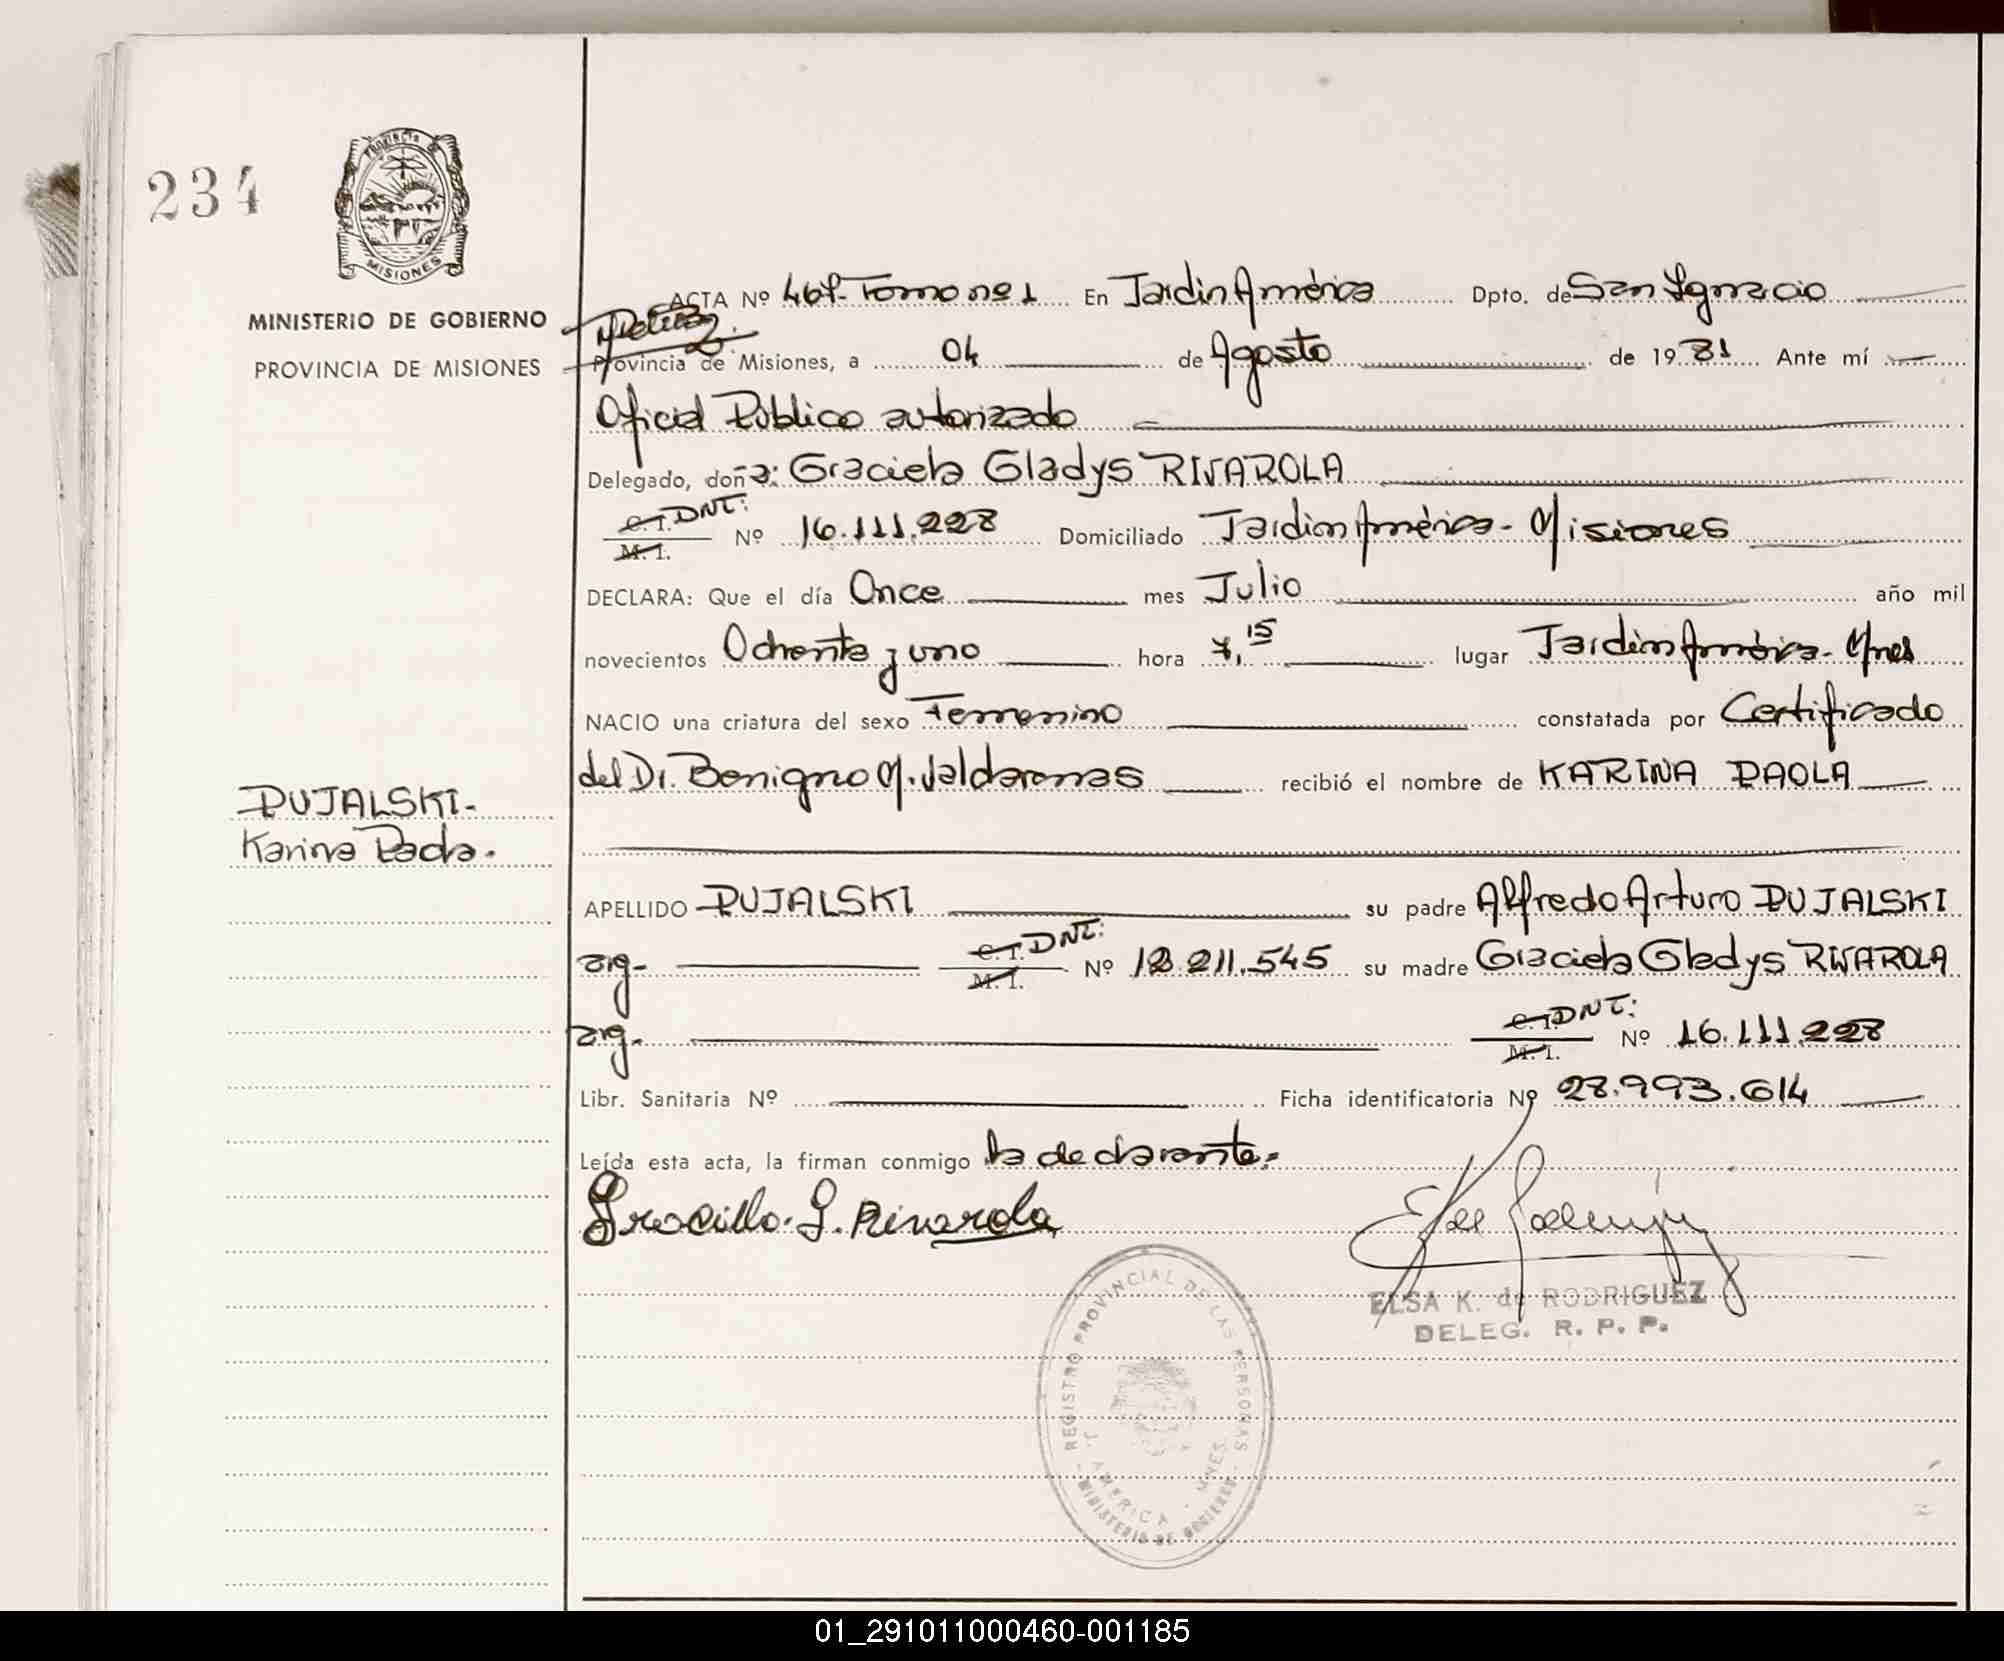 234
PROVINCIA DE
MISIONES
MINISTERIO DE GOBIERNO
PROVINCIA DE MISIONES
ACTA Nº 467- Tomo nº 1 En Jardin América Dpto. de San Ignacio
Provincia de Misiones, a 04 de Agosto de 1981 Ante mí
Oficial Público autorizado
Delegado, doña: Graciela Gladys RIVAROLA
C. I. DNI:
M. I. Nº 16.111.228 Domiciliado Jardin América - Misiones
DECLARA: Que el día Once mes Julio año mil
novecientos Ochenta y uno hora 7,15 lugar Jardin América - Mnes
NACIO una criatura del sexo Femenino constatada por Certificado
del Dr. Benigno M. Valdarenas recibió el nombre de KARINA PAOLA
PUJALSKI-
Karina Paola.
APELLIDO PUJALSKI su padre Alfredo Arturo PUJALSKI
arg- C. I. DNI:
M. I. Nº 12.211.545 su madre Graciela Gladys RIVAROLA
arg. C. I. DNI:
M. I. Nº 16.111.228
Libr. Sanitaria Nº Ficha identificatoria Nº 28.993.614
Leída esta acta, la firman conmigo la declarante.-
Graciela G. Rivarola
ELSA K. de RODRIGUEZ
DELEG. R. P. P.
REGISTRO PROVINCIAL DE LAS PERSONAS
J. AMERICA - MNES.
- MINISTERIO DE GOBIERNO -
01_291011000460-001185